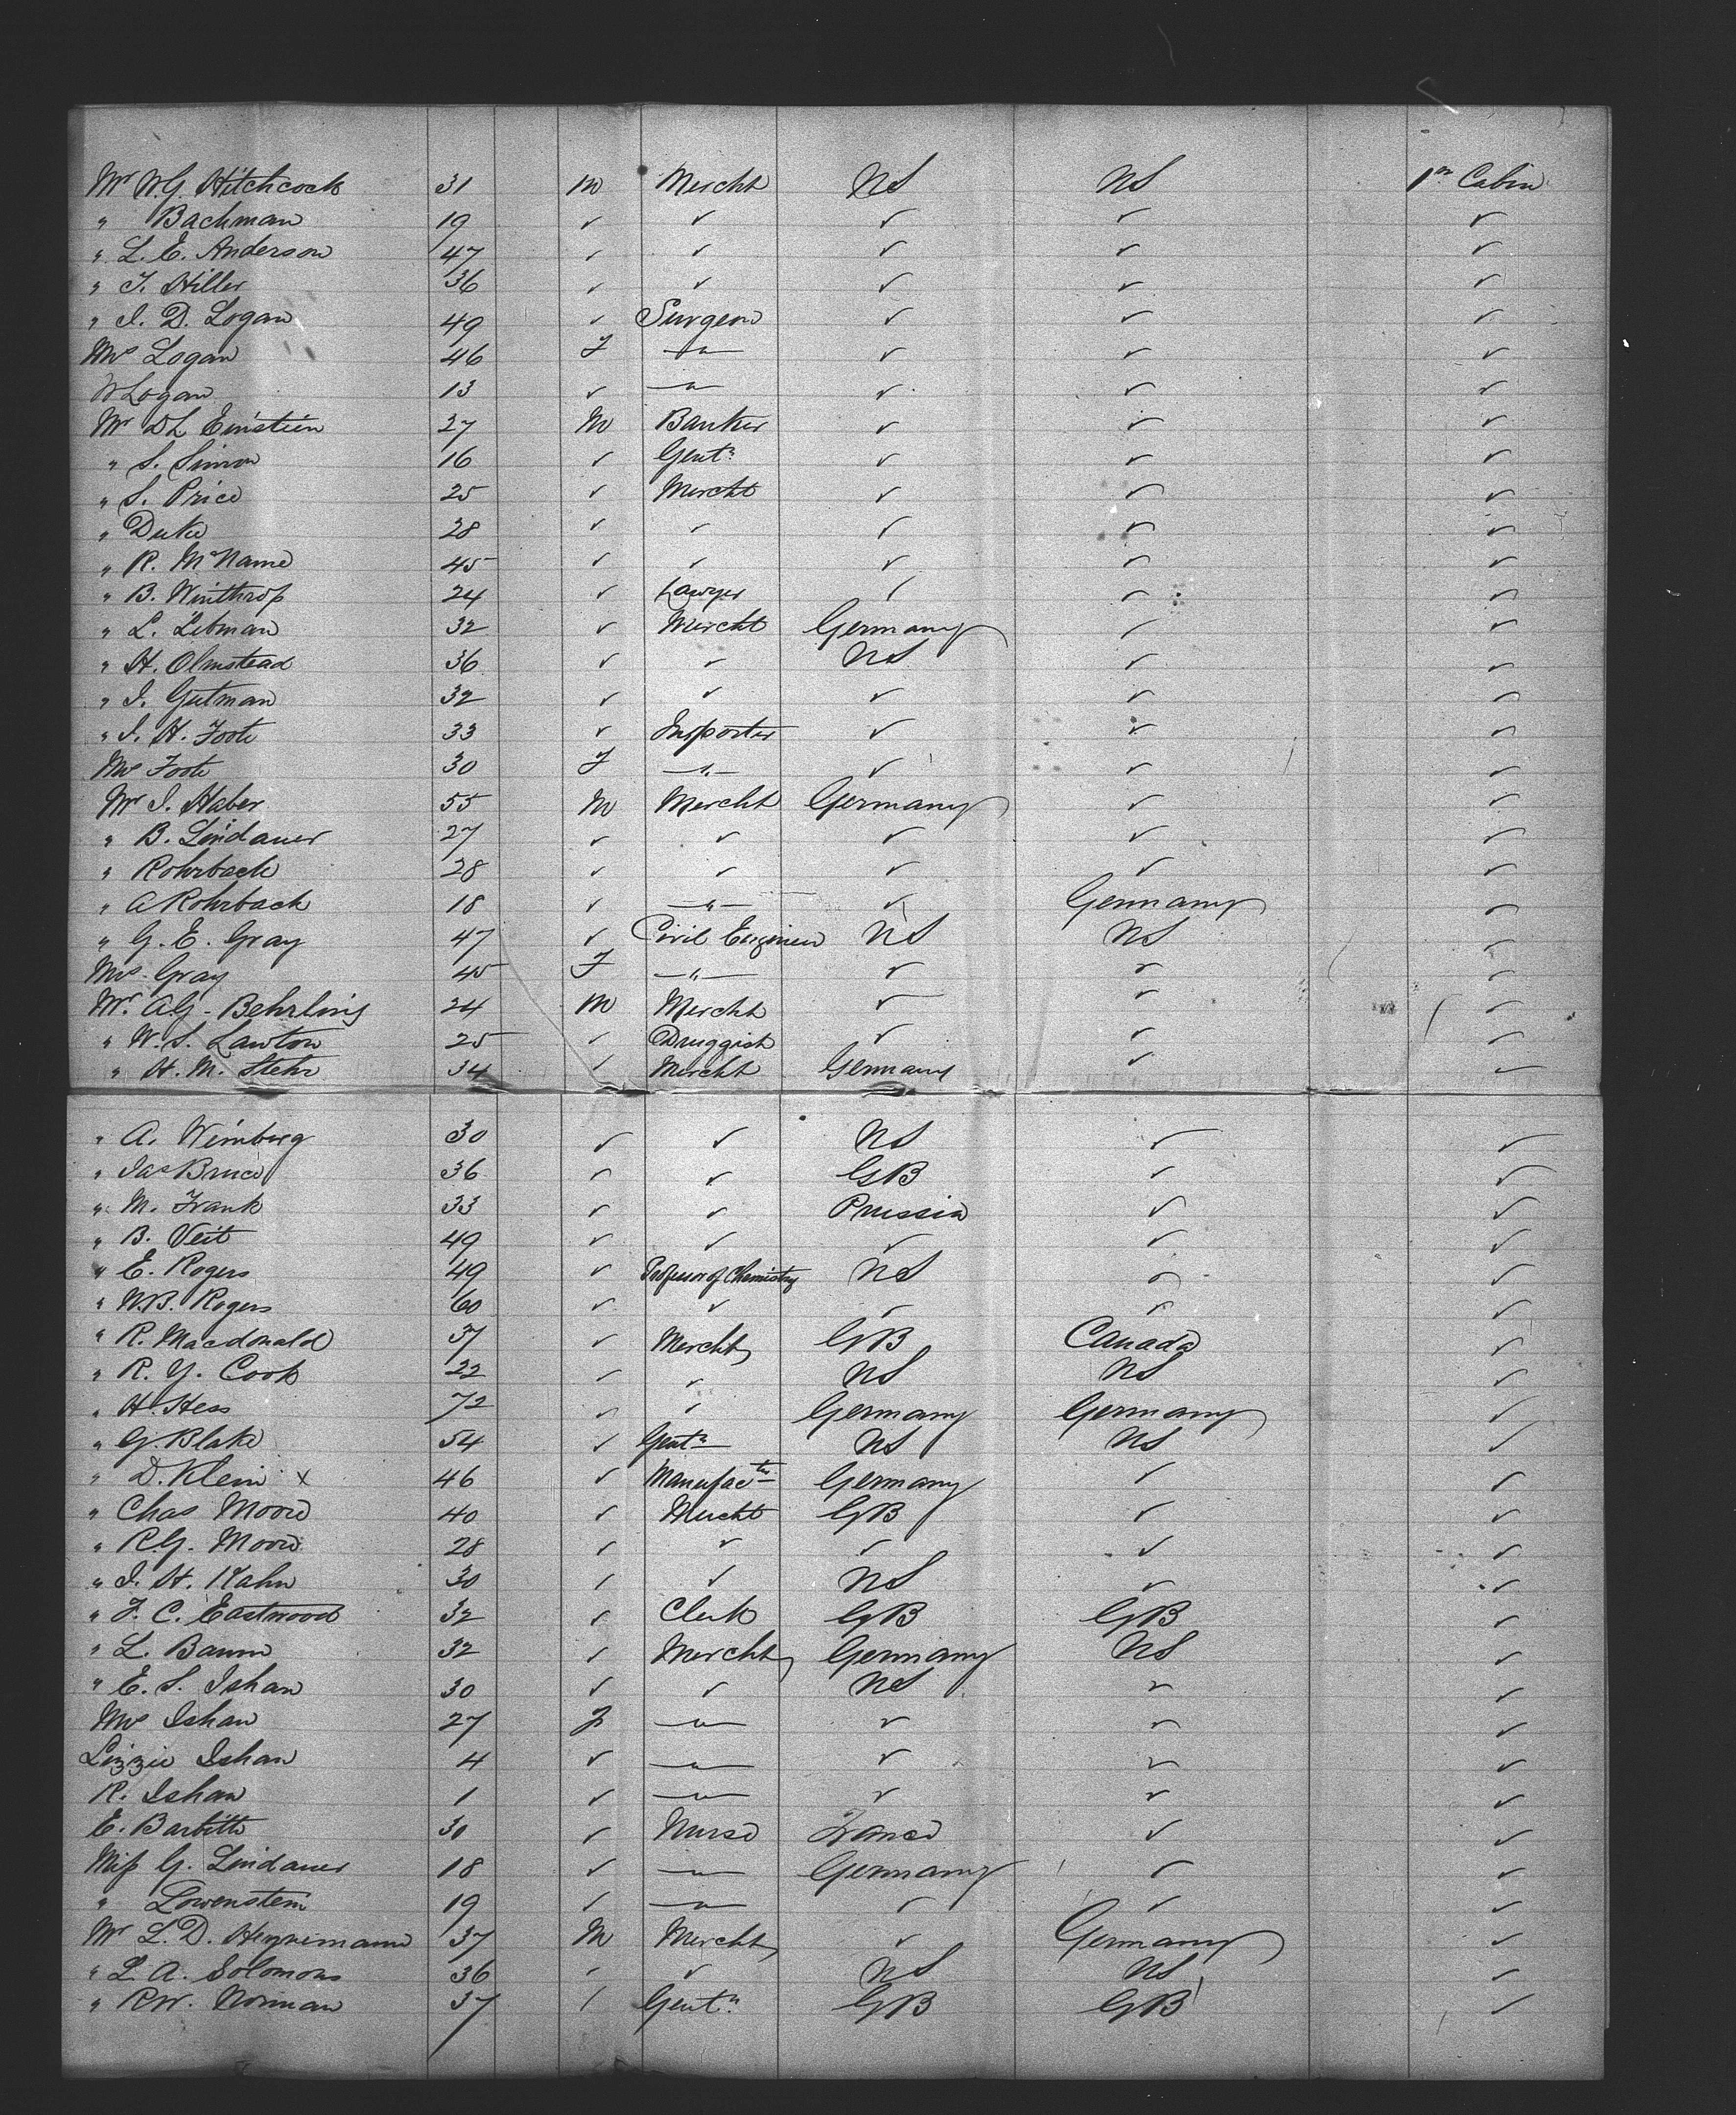 Mr W.G. Hitchcock 31 m Mercht US US 1st Cabin
" Bachman 19 ✓ ✓ ✓ ✓ ✓
" L. E. Anderson 47 ✓ ✓ ✓ ✓ ✓
" J. Hiller 36 ✓ ✓ ✓ ✓ ✓
" J. D. Logan 49 ✓ Surgeon ✓ ✓ ✓
Mrs Logan 46 F —"— ✓ ✓ ✓
Logan 13 ✓ —"— ✓ ✓ ✓
Mr DL Einstein 27 M Banker ✓ ✓ ✓
" S. Simon 16 ✓ Gentn ✓ ✓ ✓
" S. Price 25 ✓ Mercht ✓ ✓ ✓
" Duke 28 ✓ ✓ ✓ ✓ ✓
" R. McName 45 ✓ ✓ ✓ ✓ ✓
" B. Winthrop 24 ✓ Lawyer ✓ ✓ ✓
" L. Litman 32 ✓ Mercht Germany ✓ ✓
" H. Olmstead 36 ✓ ✓ US ✓ ✓
" I. Gutman 32 ✓ ✓ ✓ ✓ ✓
" J. H. Foote 33 ✓ Importer ✓ ✓ ✓
Mrs Foote 30 F —"— ✓ ✓ ✓
Mr I. Haber 55 M Mercht Germany ✓ ✓
" B. Lindauer 27 ✓ ✓ ✓ ✓ ✓
" Rohrback 28 ✓ ✓ ✓ ✓ ✓
" A Rohrback 18 ✓ —"— ✓ Germany ✓
" G. E. Gray 47 ✓ Civil Engineer US US ✓
Mrs Gray 45 F —"— ✓ ✓ ✓
Mr. AG. Behrling 24 M Mercht ✓ ✓ ✓
" W. S. Lawton 25 ✓ Druggist ✓ ✓ ✓
" H. M. Stehr 34 ✓ Mercht Germany ✓ ✓
" A. Weinberg 30 ✓ ✓ US ✓ ✓
" Jas Bruce 36 ✓ ✓ GB ✓ ✓
" M. Frank 33 ✓ ✓ Prussia ✓ ✓
" B. Veit 49 ✓ ✓ ✓ ✓ ✓
" E. Rogers 49 ✓ Professor of Chemistry US ✓ ✓
" W.B. Rogers 60 ✓ ✓ ✓ ✓ ✓
" R. Macdonald 37 ✓ Mercht GB Canada ✓
" R. Y. Cook 22 ✓ ✓ US US ✓
" H. Hess 72 ✓ ✓ Germany Germany ✓
" G. Blake 54 ✓ Gentn US US ✓
" D. Klein x 46 ✓ Manufactr Germany ✓ ✓
" Chas Moore 40 ✓ Mercht GB ✓ ✓
" R.G. Moore 28 ✓ ✓ ✓ ✓ ✓
" J. H. Kahn 30 ✓ ✓ US ✓ ✓
" F. C. Eastwood 32 ✓ Clerk GB GB ✓
" L. Baum 32 ✓ Mercht Germany US ✓
" E. S. Isham 30 ✓ ✓ US ✓ ✓
Mrs Isham 27 F —"— ✓ ✓ ✓
Lizzie Isham 4 ✓ —"— ✓ ✓ ✓
R. Isham 1 ✓ —"— ✓ ✓ ✓
E. Barbitte 30 ✓ Nurse France ✓ ✓
Miss G. Lindauer 18 ✓ —"— Germany ✓ ✓
" Lowenstein 19 ✓ —"— ✓ ✓ ✓
Mr L. D. 37 M Mercht ✓ Germany ✓
" L. A. Solomons 36 ✓ ✓ US US ✓
" RW. Norman 37 ✓ Gentn GB GB ✓